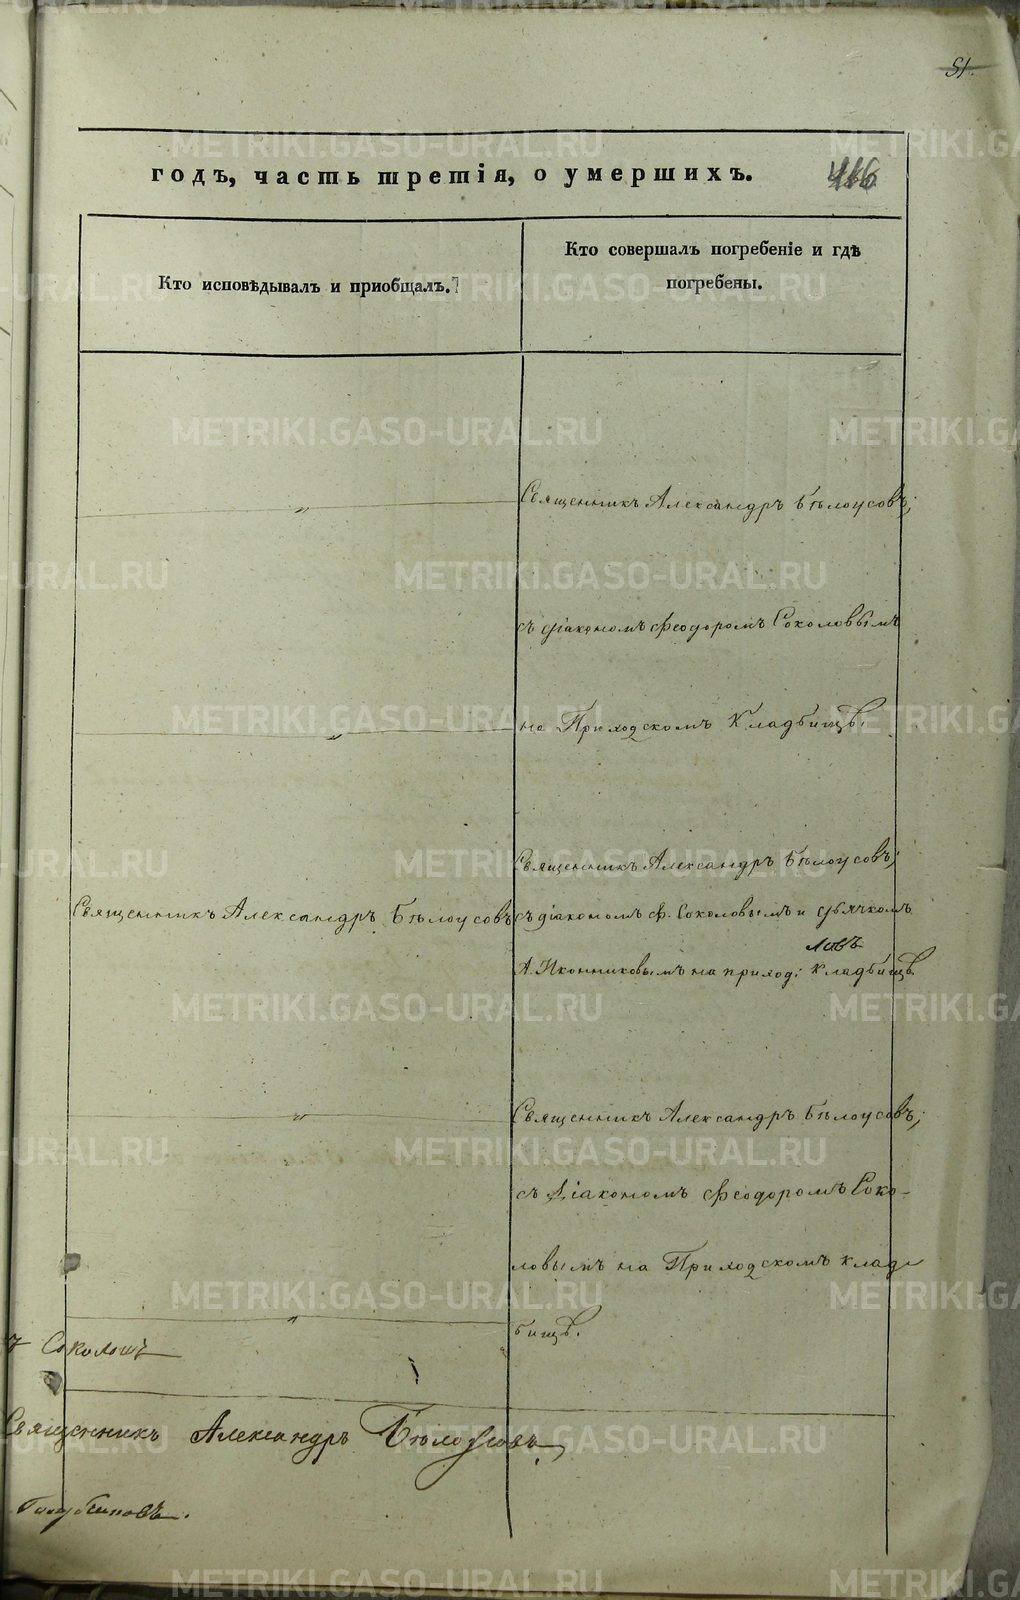 51.
годъ, часть третія, о умершихъ.
Кто исповѣдывалъ и пріобщалъ.
Кто совершалъ погребеніе и гдѣ
погребены.
Священникъ Александръ Бѣлоусовъ;
съ діакономъ Феодоромъ Соколовымъ
на Приходскомъ Кладбищѣ.
Священникъ Александръ Бѣлоусовъ
Священникъ Александръ Бѣлоусовъ;
съ діакономъ Ф. Соколовымъ и дьячкомъ
А. Иконниковымъ на приход: кладбищѣ
Священникъ Александръ Бѣлоусовъ;
съ Діакономъ Феодоромъ Соко-
ловымъ на Приходскомъ клад-
бищѣ.
ъ Соколовъ
Священникъ Александръ Бѣлоусовъ
METRIKI.GASO-URAL.RU